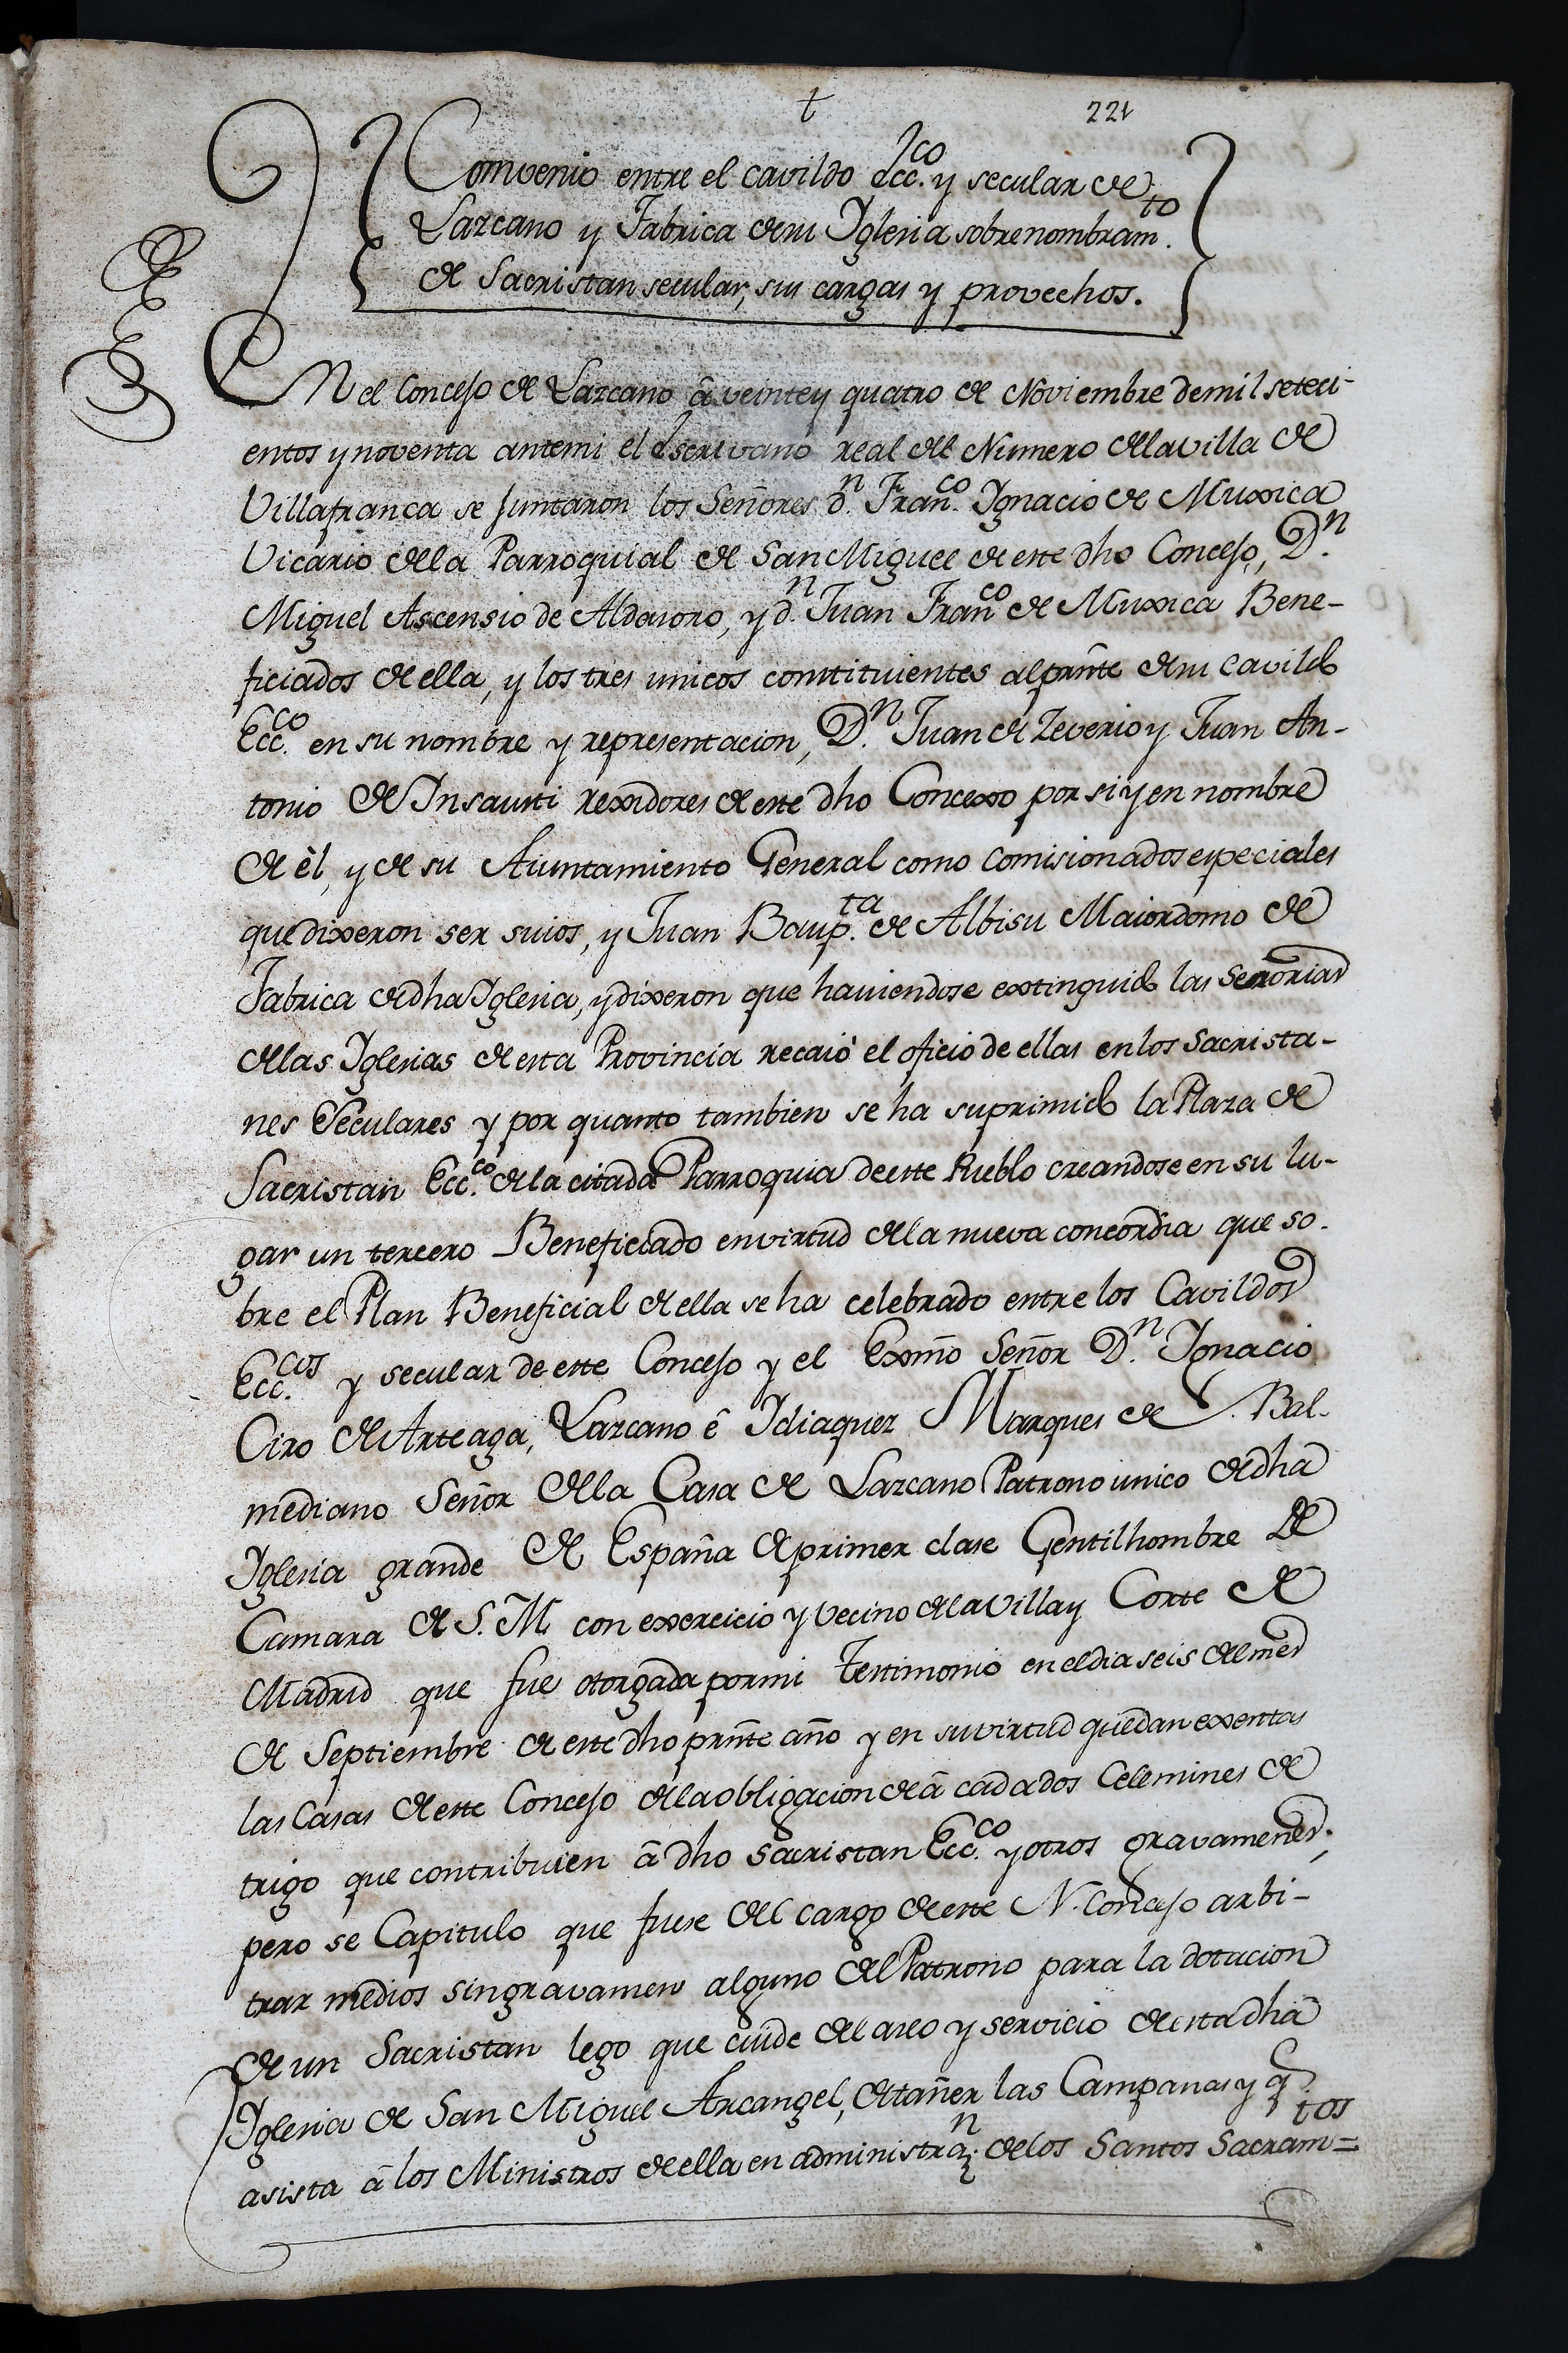 t 221
Convenio entre el cavildo Ecc.co y secular de
Lazcano y Fabrica de su Yglesia sobre nombram.to
de Sacristan secular, sus cargas y provechos.
En el Concejo de Lazcano â veinte y quatro de Noviembre de mil seteci-
entos y noventa ante mi el Escrivano real del Numero de la villa de
Villafranca se juntaron los Señores d.n Fran.co Ygnacio de Muxica
Vicario de la Parroquial de San Miguel de este dho Concejo, D.n
Miguel Ascensio de Aldasoro, y d.n Juan Franco de Muxica Bene-
ficiados de ella, y los tres unicos constituientes al pnte de su Cavildo
Ecc.co en su nombre y representacion, D.n Juan de Zeverio y Juan An-
tonio de Ynsausti rexidores de este dho Concexo por si y en nombre
de èl, y de su Aiuntamiento General como comisionados especiales
que dixeron ser suios, y Juan Baup.ta de Albisu Maiordomo de
Fabrica de dha Yglesia, y dixeron que haviendose extinguido las Seroriad
de las Yglesias de esta Provincia recaiò el oficio de ellas en los Sacrista-
nes Seculares y por quanto tambien se ha suprimido la Plaza de
Sacristan Ecc.co de la citada Parroquia de este Pueblo creandose en su lu-
gar un tercero Beneficiado en virtud de la nueva concordia que so-
bre el Plan Beneficial de ella se ha celebrado entre los Cavildos
Ecc.cos y secular de este Concejo y el Exmo Señor D.n Ygnacio
Ciro de Arteaga, Lazcano ê Ydiaquez Marques de V. Bal-
mediano Señor de la Casa de Lazcano Patrono unico de dha
Yglesia grande de España de primer clase Gentilhombre de
Camara de S. M. con exercicio y Vecino de la Villa y Corte de
Madrid que fue otorgada por mi testimonio en el dia seis del mes
de Septiembre de este dho pnte año y en su virtud quedan exentas
las Casas de este Concejo de la obligacion de â cada dos Celemines de
trigo que contribuien â dho Sacristan Ecc.co y otros gravamenes;
pero se Capitulo que fuese del cargo de este N. Concejo arbi-
trar medios sin gravamen alguno del Patrono para la dotacion
de un Sacristan lego que cuide del aseo y servicio de esta dha
Yglesia de San Miguel Arcangel, de tañer las Campanas y q.
asista â los Ministros de ella en administraz.n de los Santos Sacram=tos